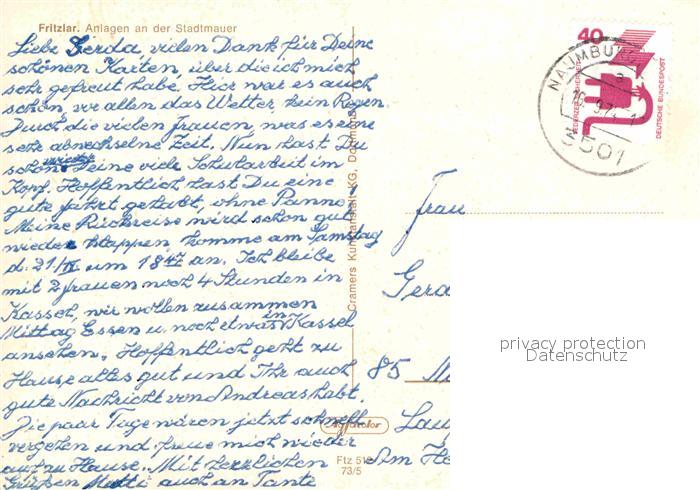 Fritzlar. Anlagen an der Stadtmauer
Liebe Gerda, vielen Dank für Deine
schönen Karten, über die ich mich
sehr gefreut habe. Hier war es auch
schön, vor allen das Wetter, kein Regen.
Durch die vielen Frauen, was es eine
sehr abwechselne Zeit. Nun hast Du
schon wieder Deine viele Schularbeit im
Kopf. Hoffentlich hast Du eine
gute Fahrt gehabt, ohne Panne.
Meine Rückreise wird schon gut
wieder klappen, komme am Samstag
d. 21/IX um 18 47 an. Ich bleibe
mit 2 Frauen noch 4 Stunden in
Kassel, wir wollen zusammen
Mittag Essen u. noch etwas in Kassel
ansehen. Hoffentlich geht zu
Hause alles gut und Ihr auch
gute Nachricht von Andreas habt.
Die paar Tage wären jetzt schnell
vergehen und freue mich wieder
auf zu Hause. Mit herzlichen
Grüßen Mutti auch an Tante
Cramers Kunstanstalt KG, Dortmund
Ftz 51
73/5
40
JEDERZEIT SICHERHEIT
DEUTSCHE BUNDESPOST
NAUMBU
a
3501
Frau
Gerd
85 N
Lau
Am He
privacy protection
Datenschutz